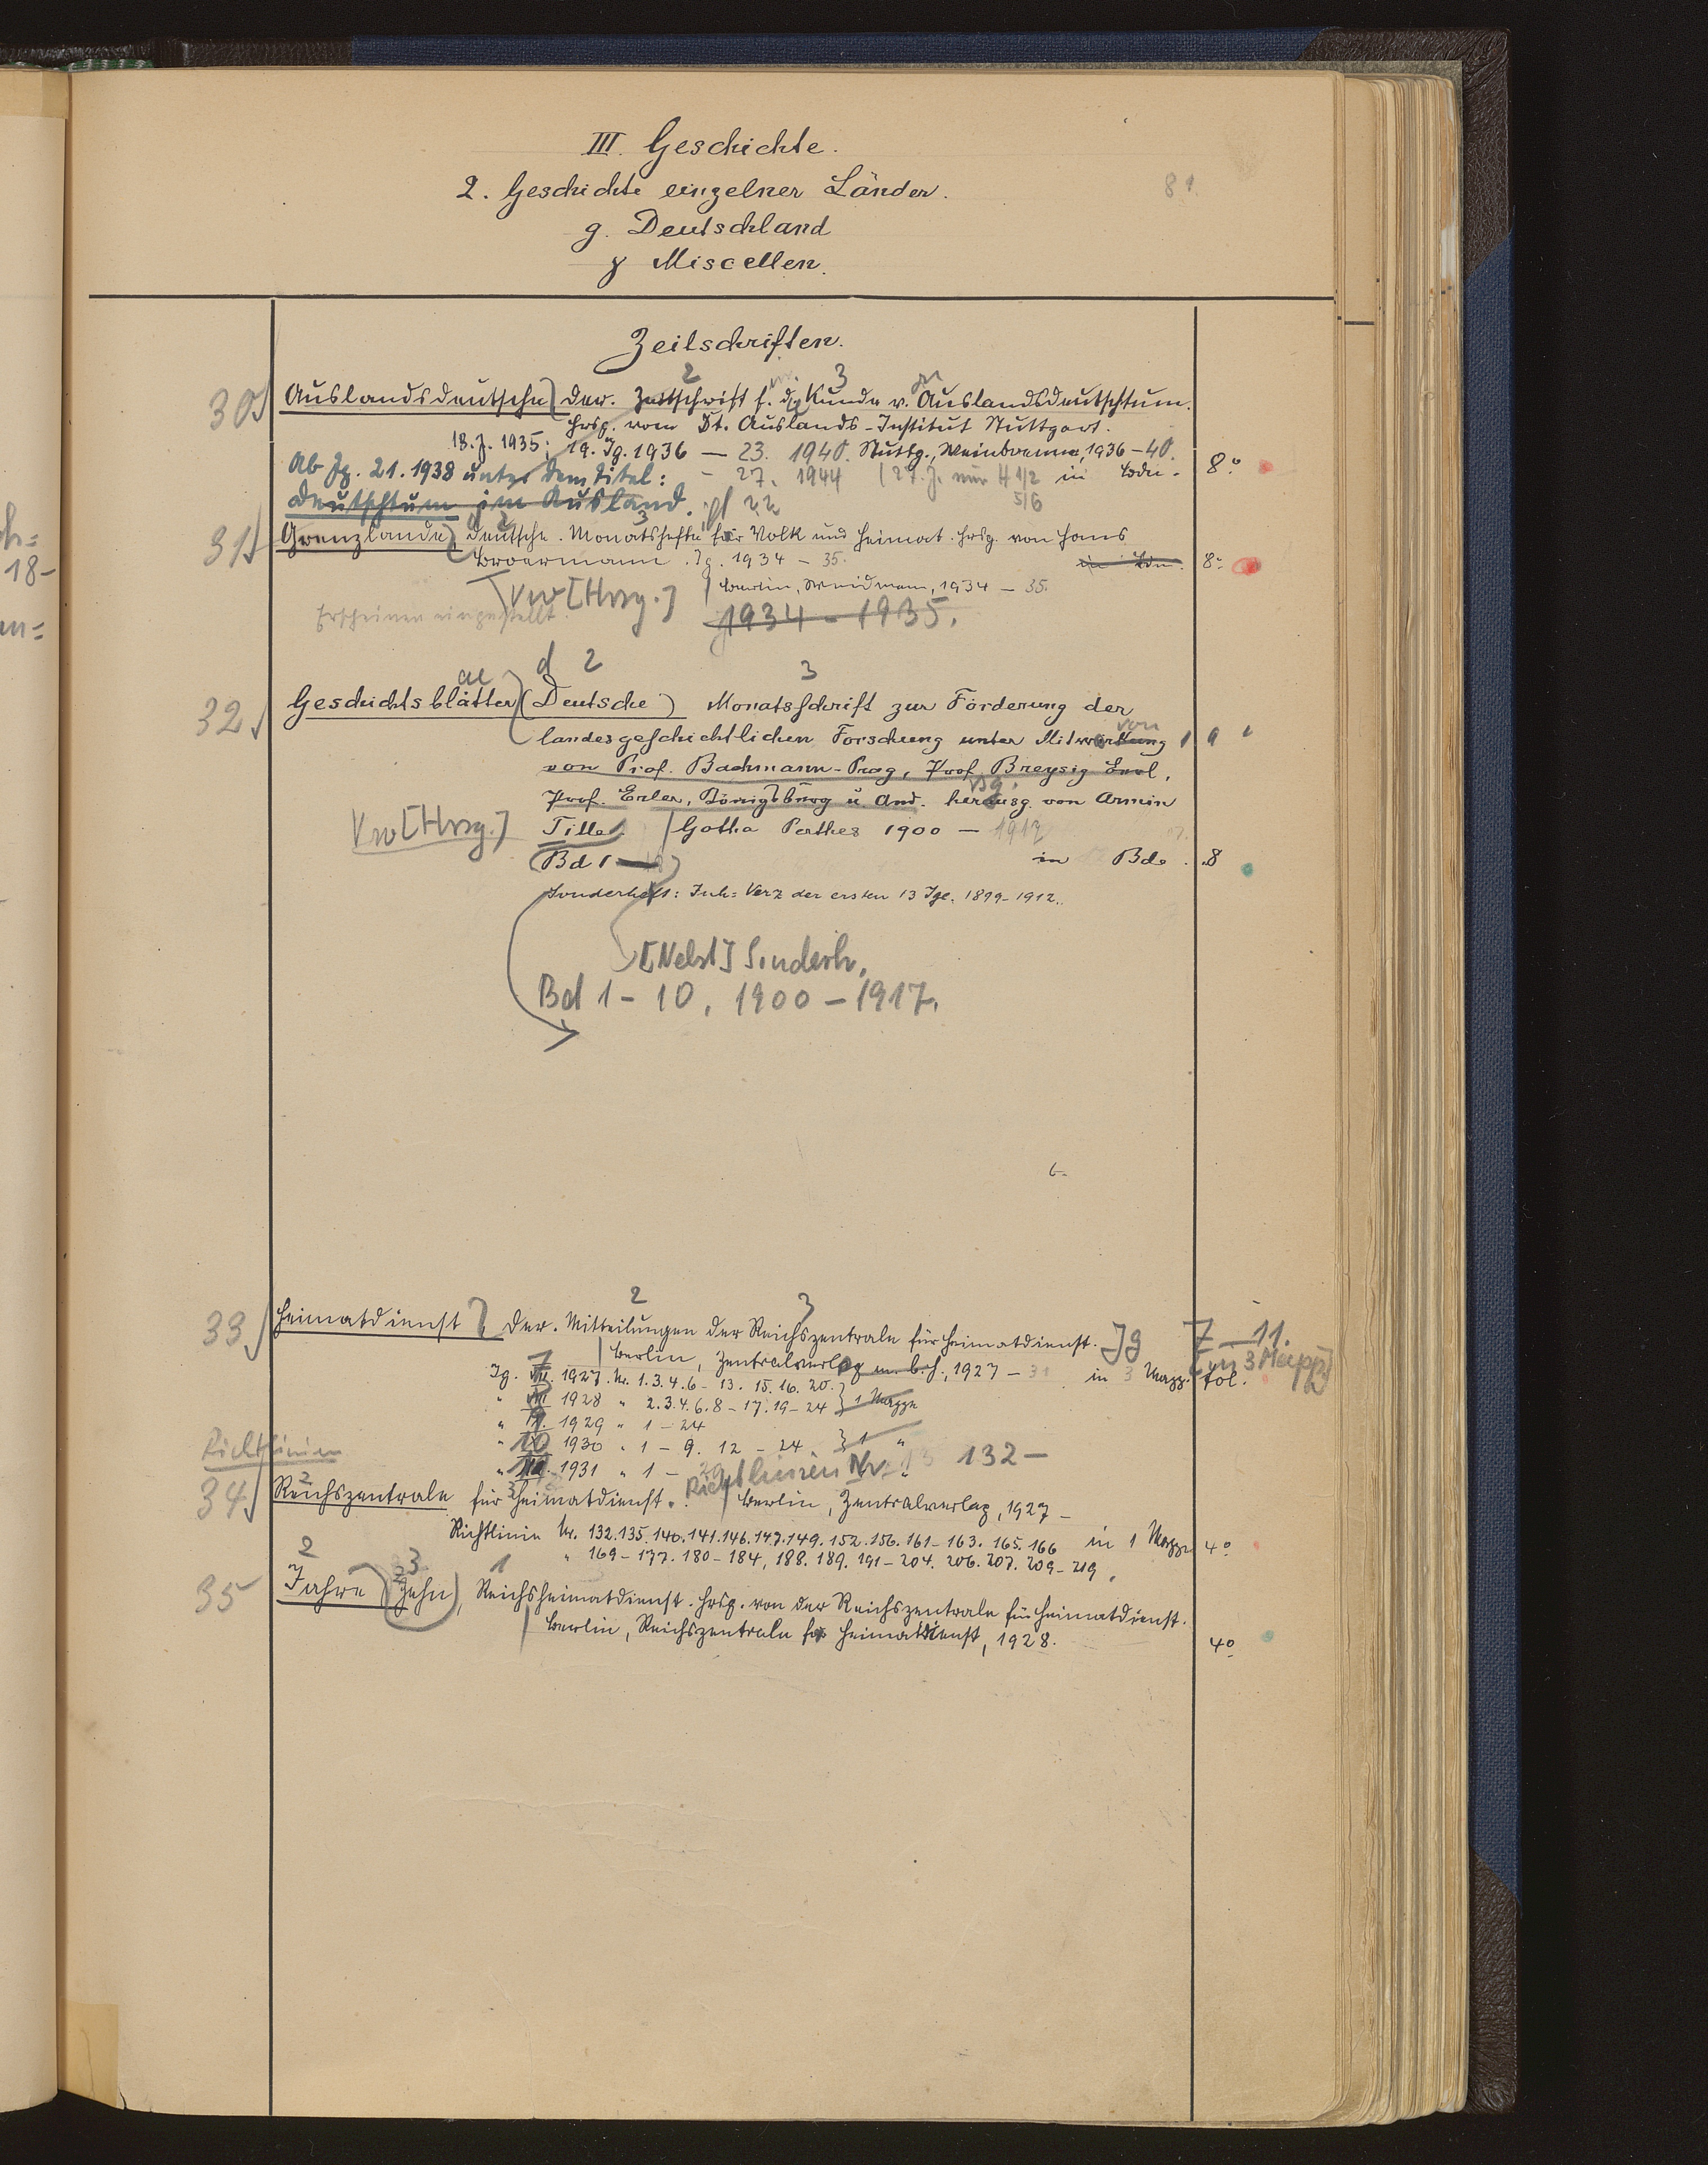 III. Geschichte.
2. Geschichte einzelner Länder.
81.
g. Deutschland
γ Miscellen.
Zeitschriften.
2 3
30 Auslandsdeutsche, Der. Zeitschrift f. d. Kunde v. Auslandsdeutschtum.
Hrsg. vom Dt. Auslands-Institut Stuttgart.
18.J. 1935; 19. Jg. 1936 — 23. 1940. Stuttg., Weinbrenner, 1936–40.
Ab Jg. 21. 1938 unter dem Titel: – 27. 1944 (27. J. nur H 1/2 in Bdn. 8°
Deutschtum im Ausland. 5/6
31 Grenzlande, Deutsche. Monatshefte für Volk und Heimat. Hrsg. von Hans
Broermann. Jg. 1934 – 35. in Bdn. 8°
Vw [Hrsg.] Berlin, Weidmann, 1934 – 35.
Erscheinen eingestellt. 1934 - 1935.
d 2 3
32 Geschichtsblätter (Deutsche) Monatsschrift zur Förderung der
landesgeschichtlichen Forschung unter Mitwirkung von
von Prof. Bachmann-Prag, Prof. Breysig Berl.,
Prof. Erler, Königsburg u And. herausg. von Armin
Vw [Hrsg.] Tille. Gotha Perthes 1900 — 1917
Bd 1 — in Bde. 8
Sonderheft: Inh= Verz der ersten 13 Jge. 1899-1912.
[Nebst] Sonderh.
Bd 1 – 10, 1900 – 1917.
2 3
33 Heimatdienst, Der. Mitteilungen der Reichszentrale für Heimatdienst. Jg 7 – 11.
Berlin, Zentralverlag m. b. H., 1927 – 31 in 3 Mapp. fol. (in 3 Mapp)
Jg. 7 1927. Nr. 1.3.4.6 – 13. 15. 16. 20.
" 1928 " 2.3.4.6.8 – 17. 19 – 24 } 1 Mappe
" 1929 " 1 – 24
" 10 1930 " 1 – 9. 12 – 24. } 1 "
" 1931 " 1 –
Richtlinien Richtlinien Nr. 132 –
34 Reichszentrale für Heimatdienst. Berlin, Zentralverlag, 1927 –
Richtlinie Nr. 132. 135. 140. 141. 146. 147. 149. 152. 156. 161 – 163. 165. 166 in 1 Mappe 4°
" 169 – 177. 180 – 184, 188. 189. 191 – 204. 206. 207. 209 – 219.
2 3 1
35 Jahre (Zehn), Reichsheimatdienst. Hrsg. von der Reichszentrale für Heimatdienst.
Berlin, Reichszentrale für Heimatdienst, 1928. 4°